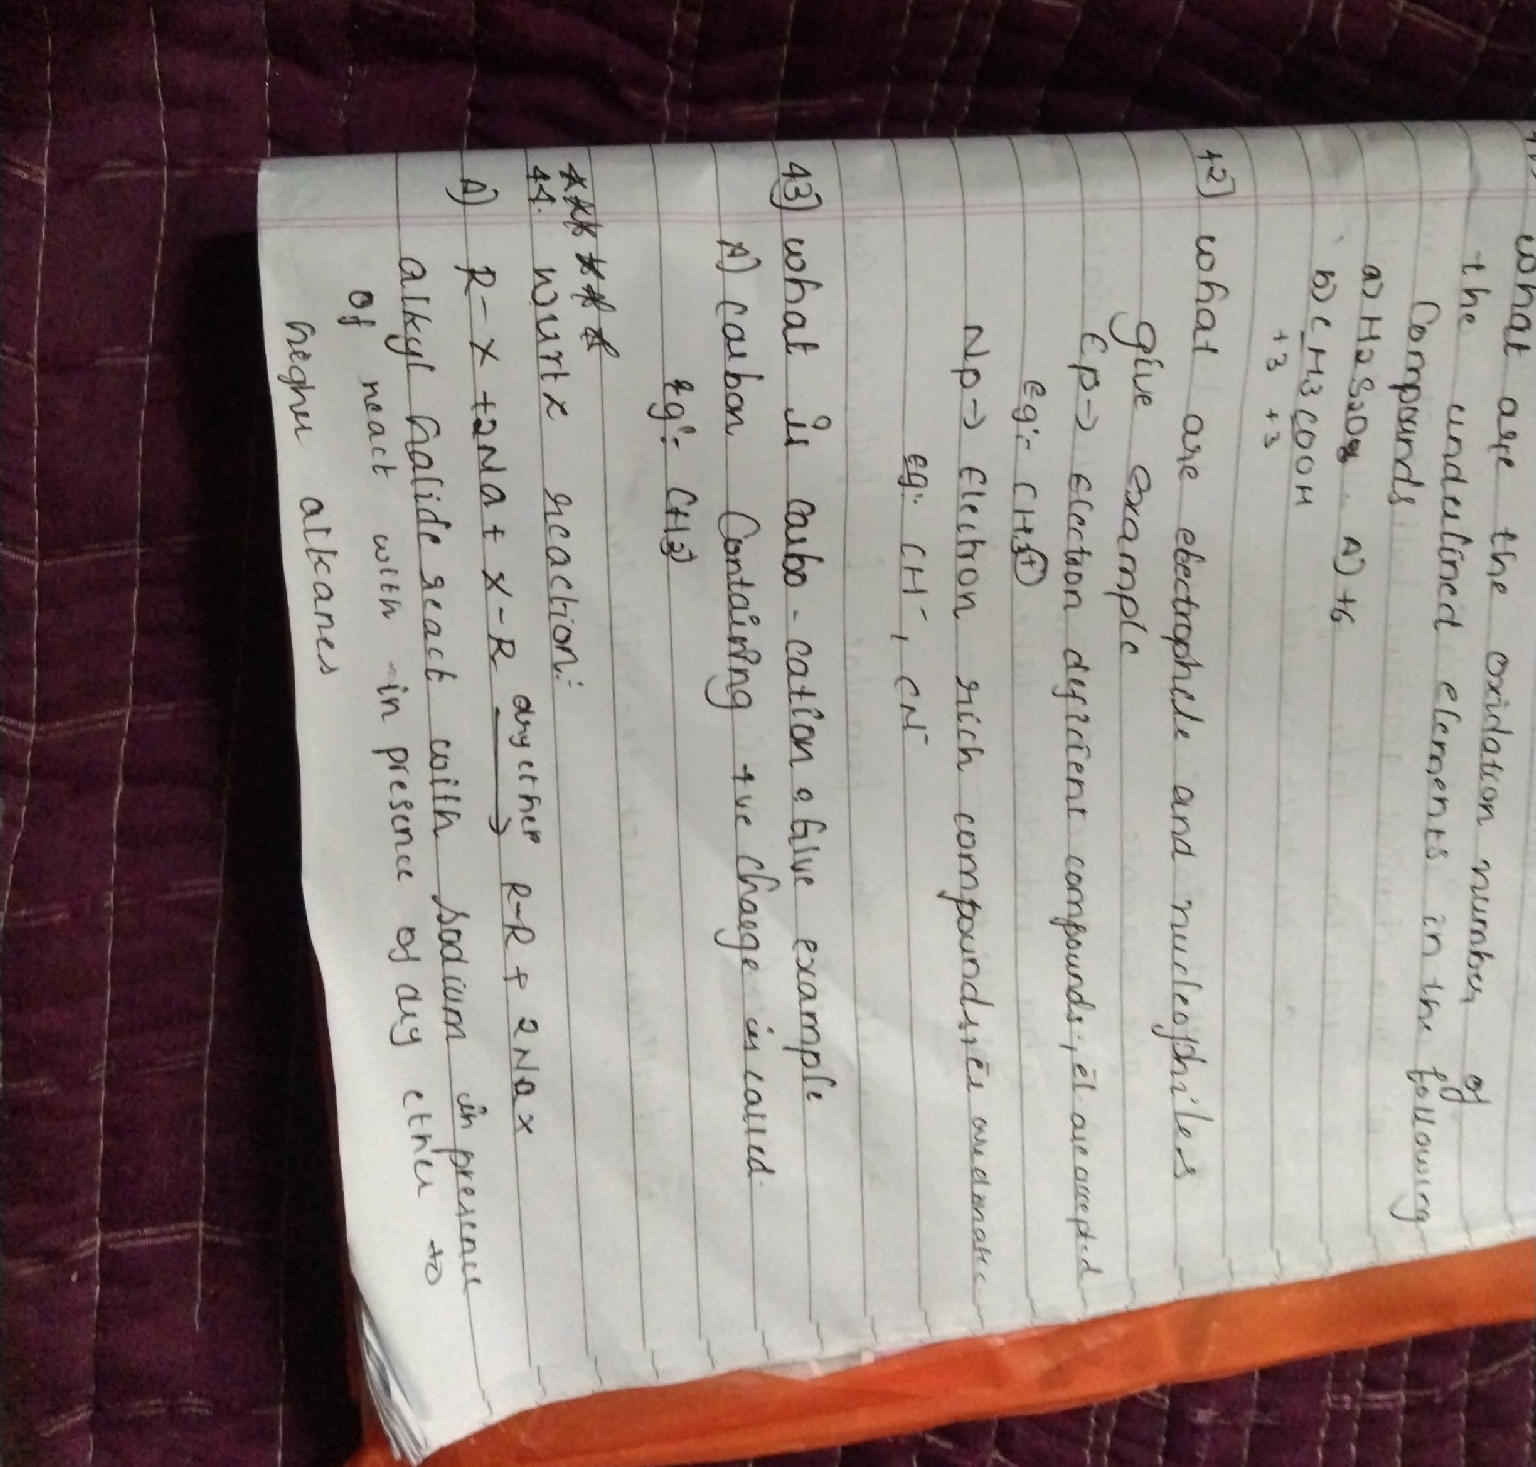 what are the oxidation number of
the underlined elements in the following
Compounds
a) H2S2O8 A) +6
b) CH3COOH
+3 +3
42) what are electrophele and nucleophiles
give example
Ep→ Electron deficient compounds, el are accepted
Eg:- CH3⊕
Np→ Electron rich compounds, es are donate
eg:- CH⁻, CN⁻
43) what is carbo-cation? Give example
A) carbon Containing +ve charge is called.
Eg:- CH3
******
44. Wurtz reaction:-
A) R-X +2Na + X-R dry ether → R-R + 2NaX
alkyl halide react with sodium in presence
of react with in presence of dry ether to
higher alkanes